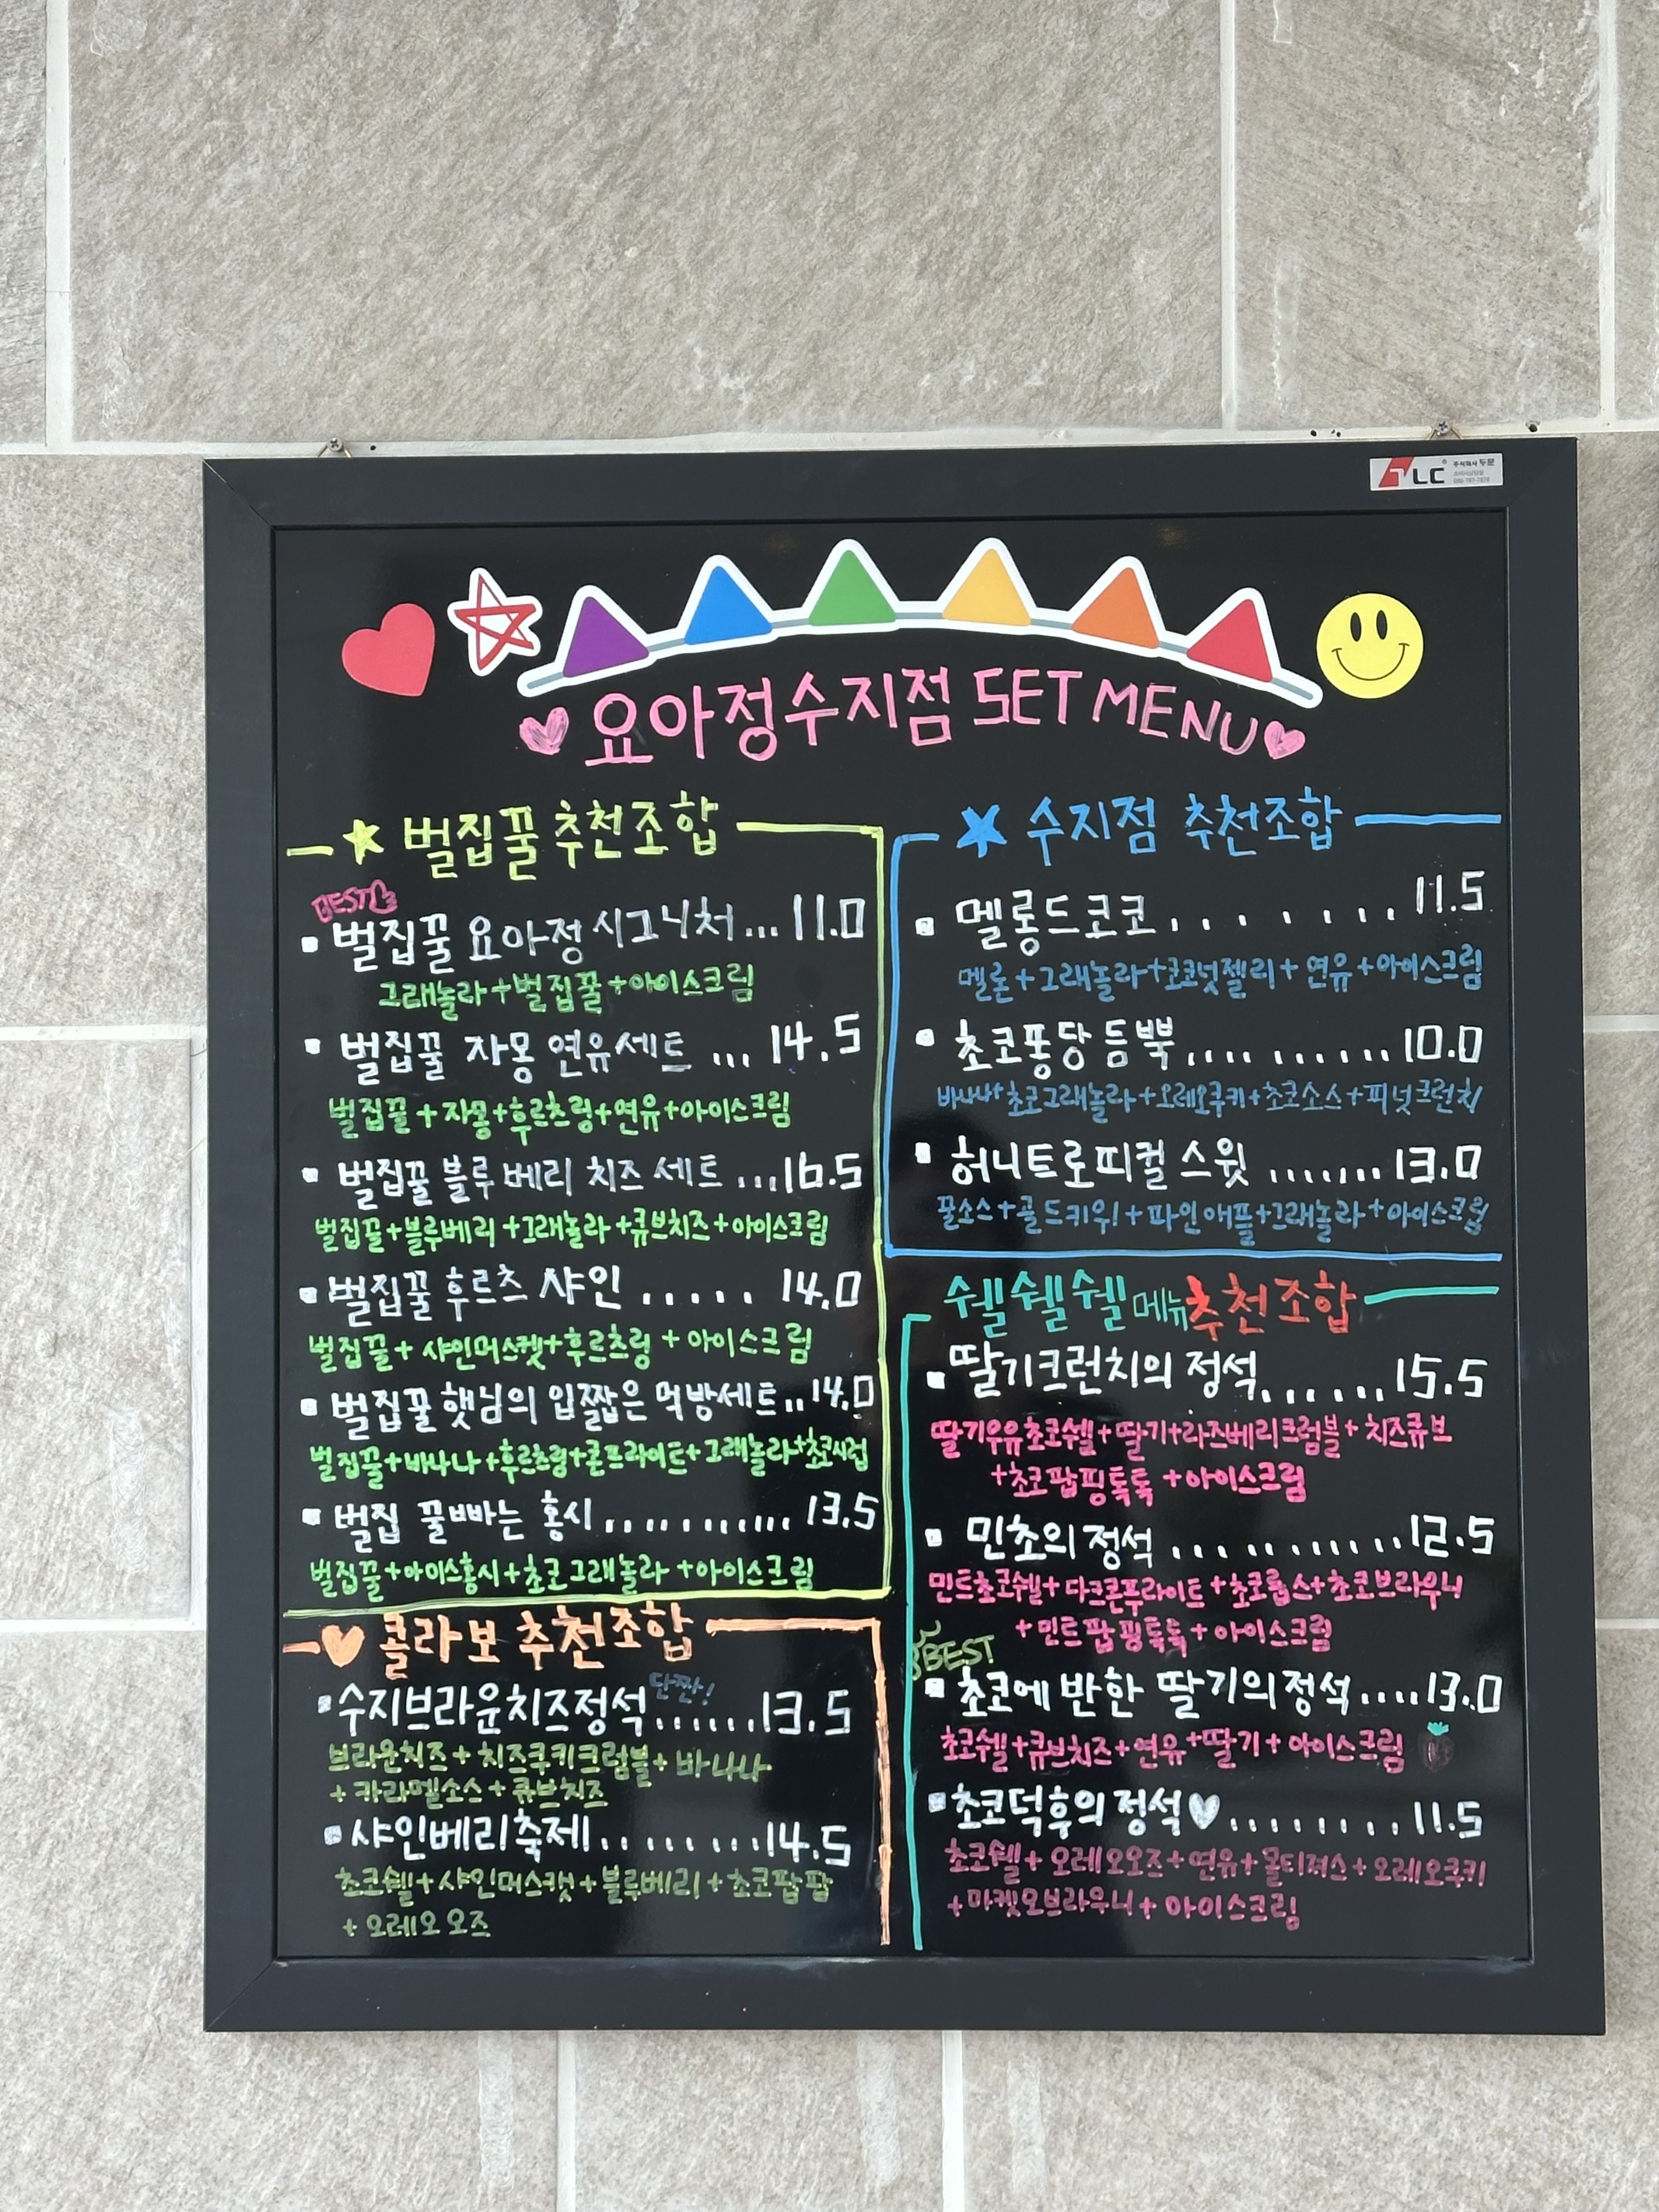 LC
주식회사 두문
요아정수지점 SET MENU
벌집꿀 추천조합
BEST
벌집꿀 요아정 시그니처... 11.0
그래놀라+벌집꿀+아이스크림
벌집꿀 자몽 연유세트 ... 14.5
벌집꿀+자몽+후르츠링+연유+아이스크림
벌집꿀 블루베리 치즈 세트 ...16.5
벌집꿀+블루베리+그래놀라+큐브치즈+아이스크림
벌집꿀 후르츠 샤인 ..... 14.0
벌집꿀+샤인머스켓+후르츠링+아이스크림
벌집꿀 햇님의 입짧은 먹방세트..14.0
벌집꿀+바나나+후르츠링+콘프라이트+그래놀라+초코시럽
벌집 꿀빠는 홍시............ 13.5
벌집꿀+아이스홍시+초코그래놀라+아이스크림
콜라보 추천조합
단짠!
수지브라운치즈정석......13.5
브라운치즈+치즈쿠키크럼블+바나나
+카라멜소스+큐브치즈
샤인베리축제.........14.5
초코쉘+샤인머스캣+블루베리+초코팝팝
+오레오 오즈
수지점 추천조합
멜롱드코코........ 11.5
멜론+그래놀라+코코넛젤리+연유+아이스크림
초코퐁당 듬뿍...........10.0
바나나+초코그래놀라+오레오쿠키+초코소스+피넛크런치
허니트로피컬 스윗 .......13.0
꿀소스+골드키위+파인애플+그래놀라+아이스크림
쉘쉘쉘메뉴추천조합
딸기크런치의 정석......15.5
딸기우유초코쉘+딸기+라즈베리크럼블+치즈큐브
+초코팝핑톡톡+아이스크림
민초의정석............12.5
민트초코쉘+다크콘푸라이트+초코룹스+초코브라우니
+민트팝핑톡톡+아이스크림
BEST
초코에 반한 딸기의정석....13.0
초코쉘+큐브치즈+연유+딸기+아이스크림
초코덕후의 정석♥......... 11.5
초코쉘+오레오오즈+연유+몰티져스+오레오쿠키
+마켓오브라우니+아이스크림